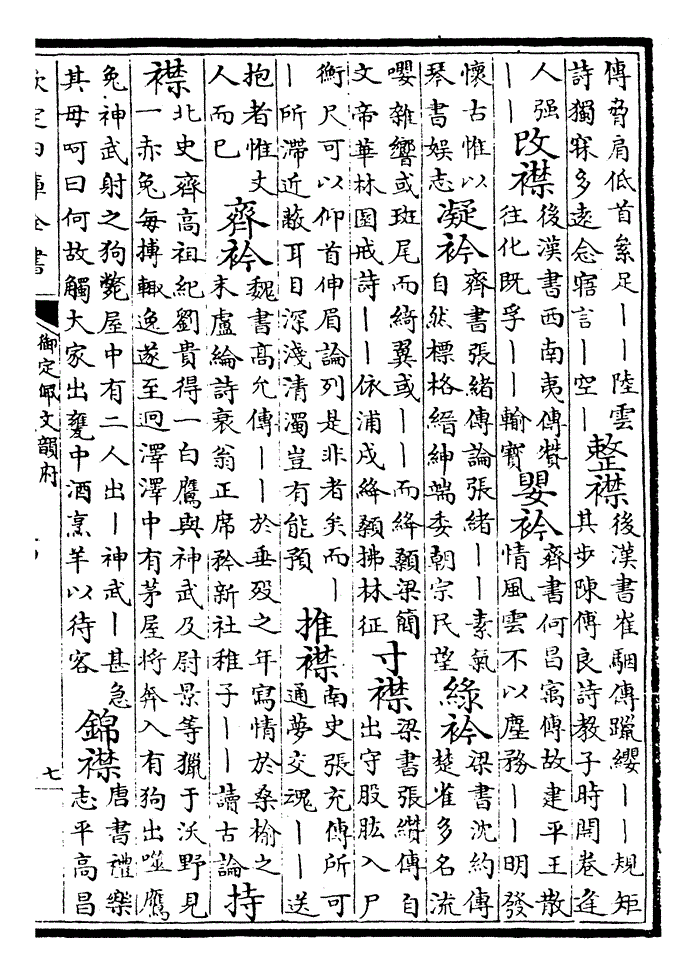 傅脅肩低首絫足丨丨陸雲
詩獨寐多遠念寤言丨空丨
整襟
後漢書崔駰傳躐纓丨丨規矩
其步陳傅良詩教子時開卷逢
人强
丨丨
改襟
後漢書西南夷傳贊
往化既孚丨丨輸寳
嬰衿
齊書何昌寓傳故建平王散
情風雲不以塵務丨丨明發
懷古惟以
琴書娛志
凝衿
齊書張緒傳論張緒丨丨素氣
自然標格縉紳端委朝宗民望
緑衿
梁書沈約傳
楚雀多名流
嚶雜響或班尾而綺翼或丨丨而絳顙梁簡
文帝華林園戒詩丨丨依浦戍絳顙拂林征
寸襟
梁書張纘傳自
出守股肱入尸
衡尺可以仰首伸眉論列是非者矣而丨
丨所滯近蔽耳目深淺清濁豈有能預
推襟
南史張充傳所可
通夢交魂丨丨送
抱者惟丈
人而已
齊衿
魏書高允傳丨丨於垂殁之年寫情於桑榆之
末盧綸詩衰翁正席矜新社稚子丨丨讀古論
持
襟
北史齊高祖紀劉貴得一白鷹與神武及尉景等獵于沃野見
一赤兔每搏輒逸遂至迥澤澤中有茅屋將奔入有狗出噬鷹
兔神武射之狗斃屋中有二人出丨神武丨甚急
其母呵曰何故觸大家出甕中酒烹羊以待客
錦襟
唐書禮樂
志平高昌
欽定四庫全書
御定佩文韻府
七